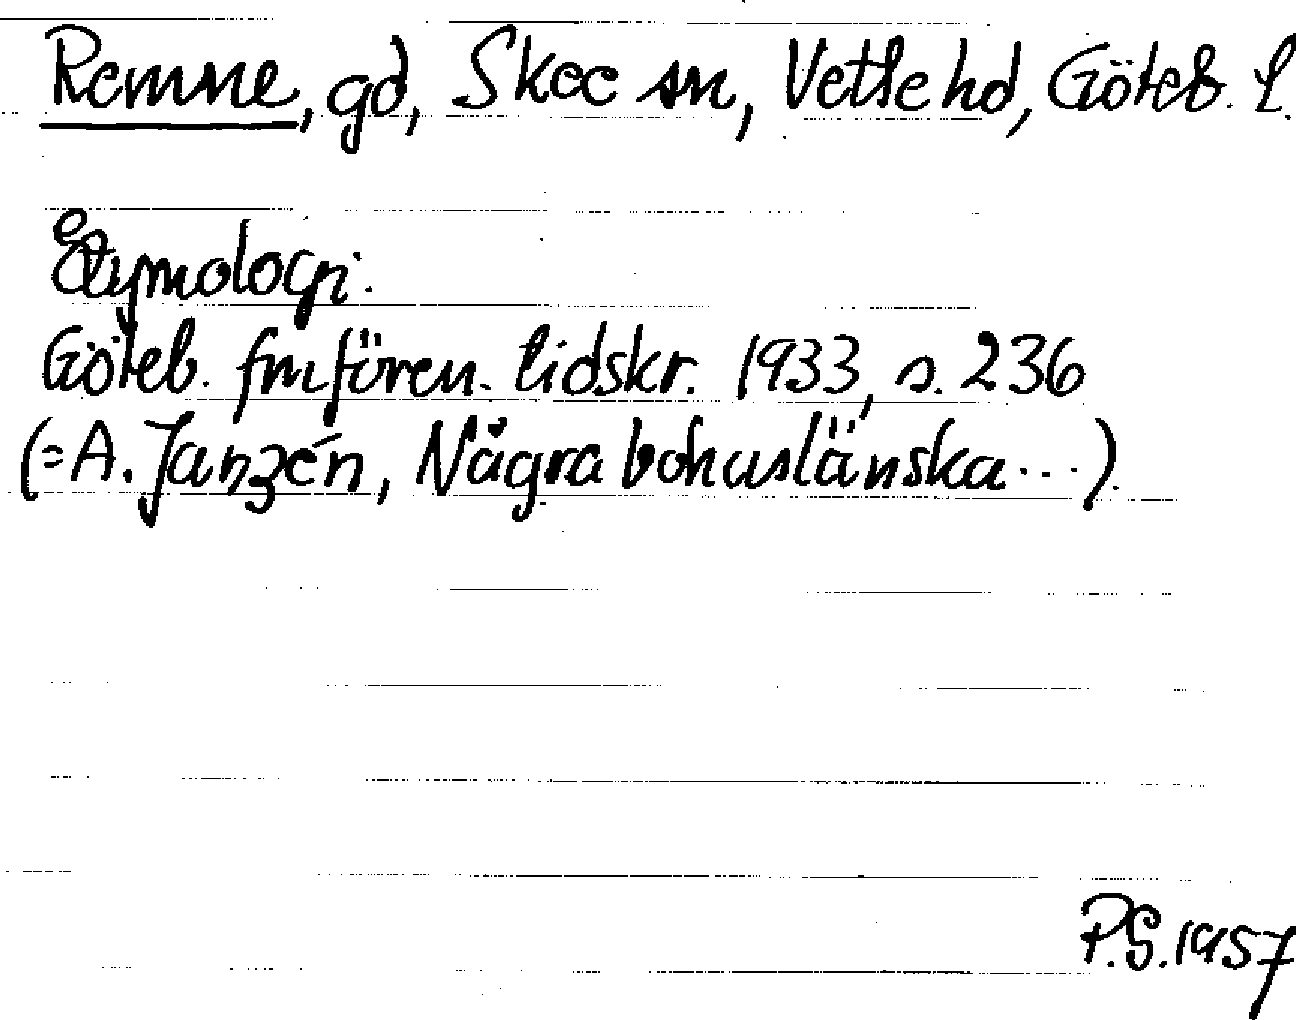 Remne, gd, Skee sn, Vette hd, Göteb. L.
Etymologi:
Göteb. fmfören. tidskr. 1933, s. 236
(= A. Janzén, Några bohuslänska ...).
P.S. 1957